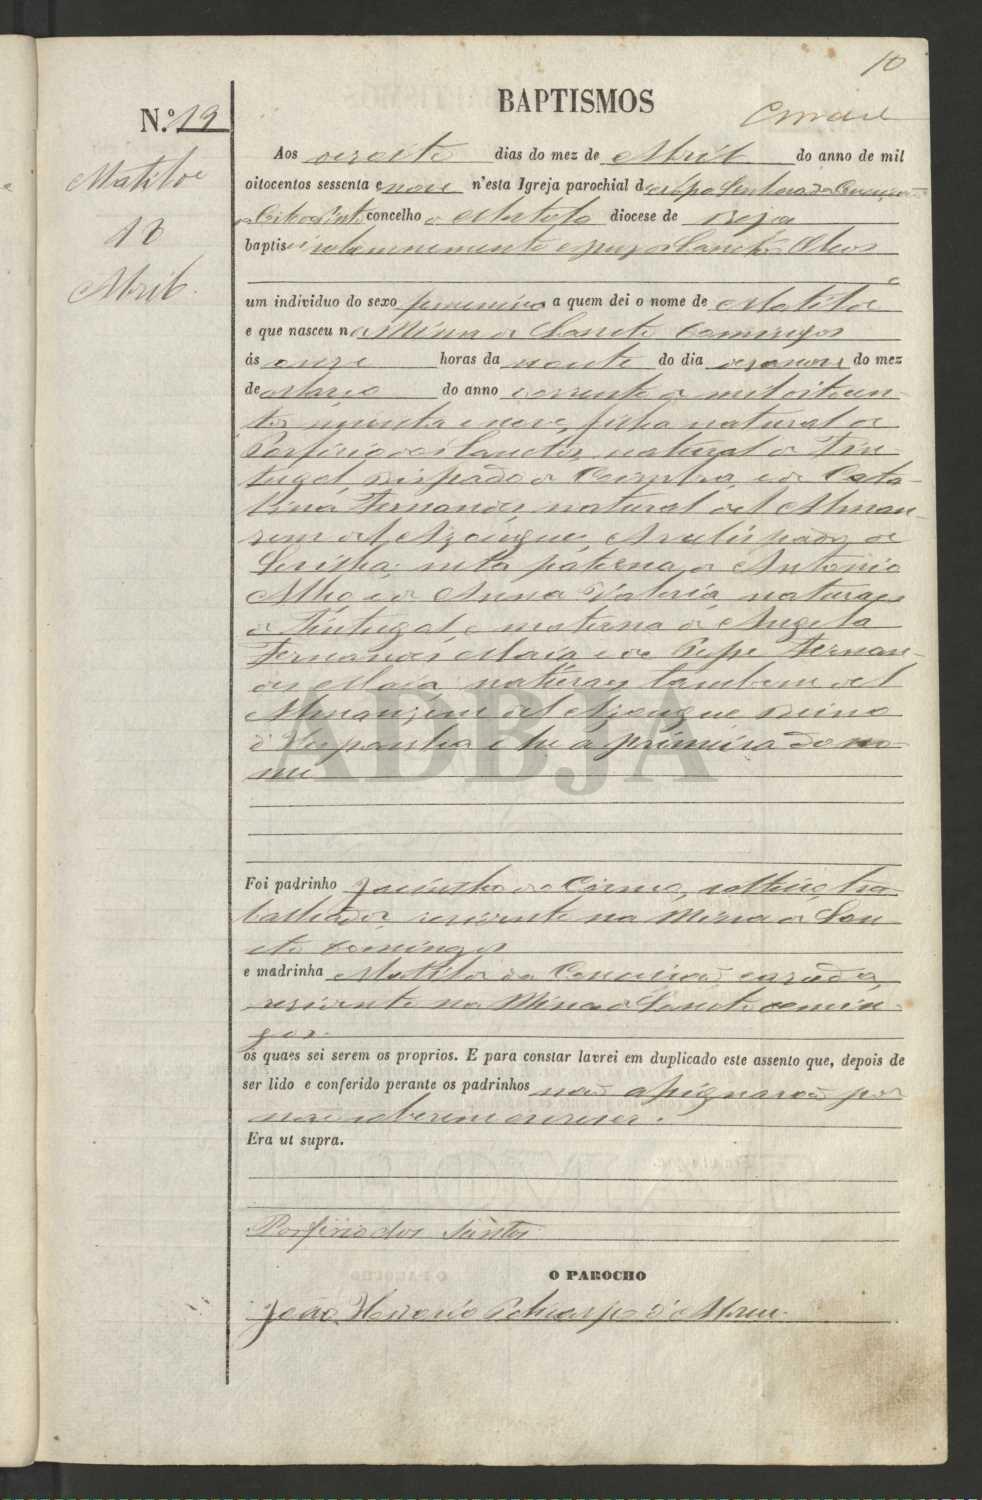 10
BAPTISMOS
N.º 19
Matilde
18
Abril.
Aos dezoito dias do mez de Abril do anno de mil
oitocentos sessenta e nove n'esta Igreja parochial de Senhora da Conceição
concelho de Mertola diocese de Beja
baptisei solemnemente e puz os Sanctos Oleos
a
um individuo do sexo femenino a quem dei o nome de Matilde
e que nasceu na Mina de Sancto Domingos
ás onze horas da noute do dia dezanove do mez
de Março do anno corrente de mil oitocen-
tos sessenta e nove, filha natural de
Porfirio dos Sanctos, natural de Tin-
tugal, Bispado de Coimbra, e de Cata-
lina Fernandes, natural del Alman-
zem del Azougue, Arcebispado de
Sevilha; neta paterna de Antonio
Alho e de Anna Valeria, naturaes
de Tintugal, e materna de Angela
Fernandes Maia e de Pepe Fernan-
des Maia, naturaes tambem del
Almanzem del Azougue Reino
d'Hespanha e he a primeira do no-
me
Foi padrinho Jacintho do Carmo, solteiro, tra-
balhador, residente na Mina de San-
cto Domingos
e madrinha Matilde da Conceição, casada,
residente na Mina de Sancto Domin-
gos.
os quaes sei serem os proprios. E para constar lavrei em duplicado este assento que, depois de
ser lido e conferido perante os padrinhos não assignarão por
não saberem escrever.
Era ut supra.
Porfirio dos Santos
O PAROCHO
João Honorio Policarpo d'Abreu
ADBJA